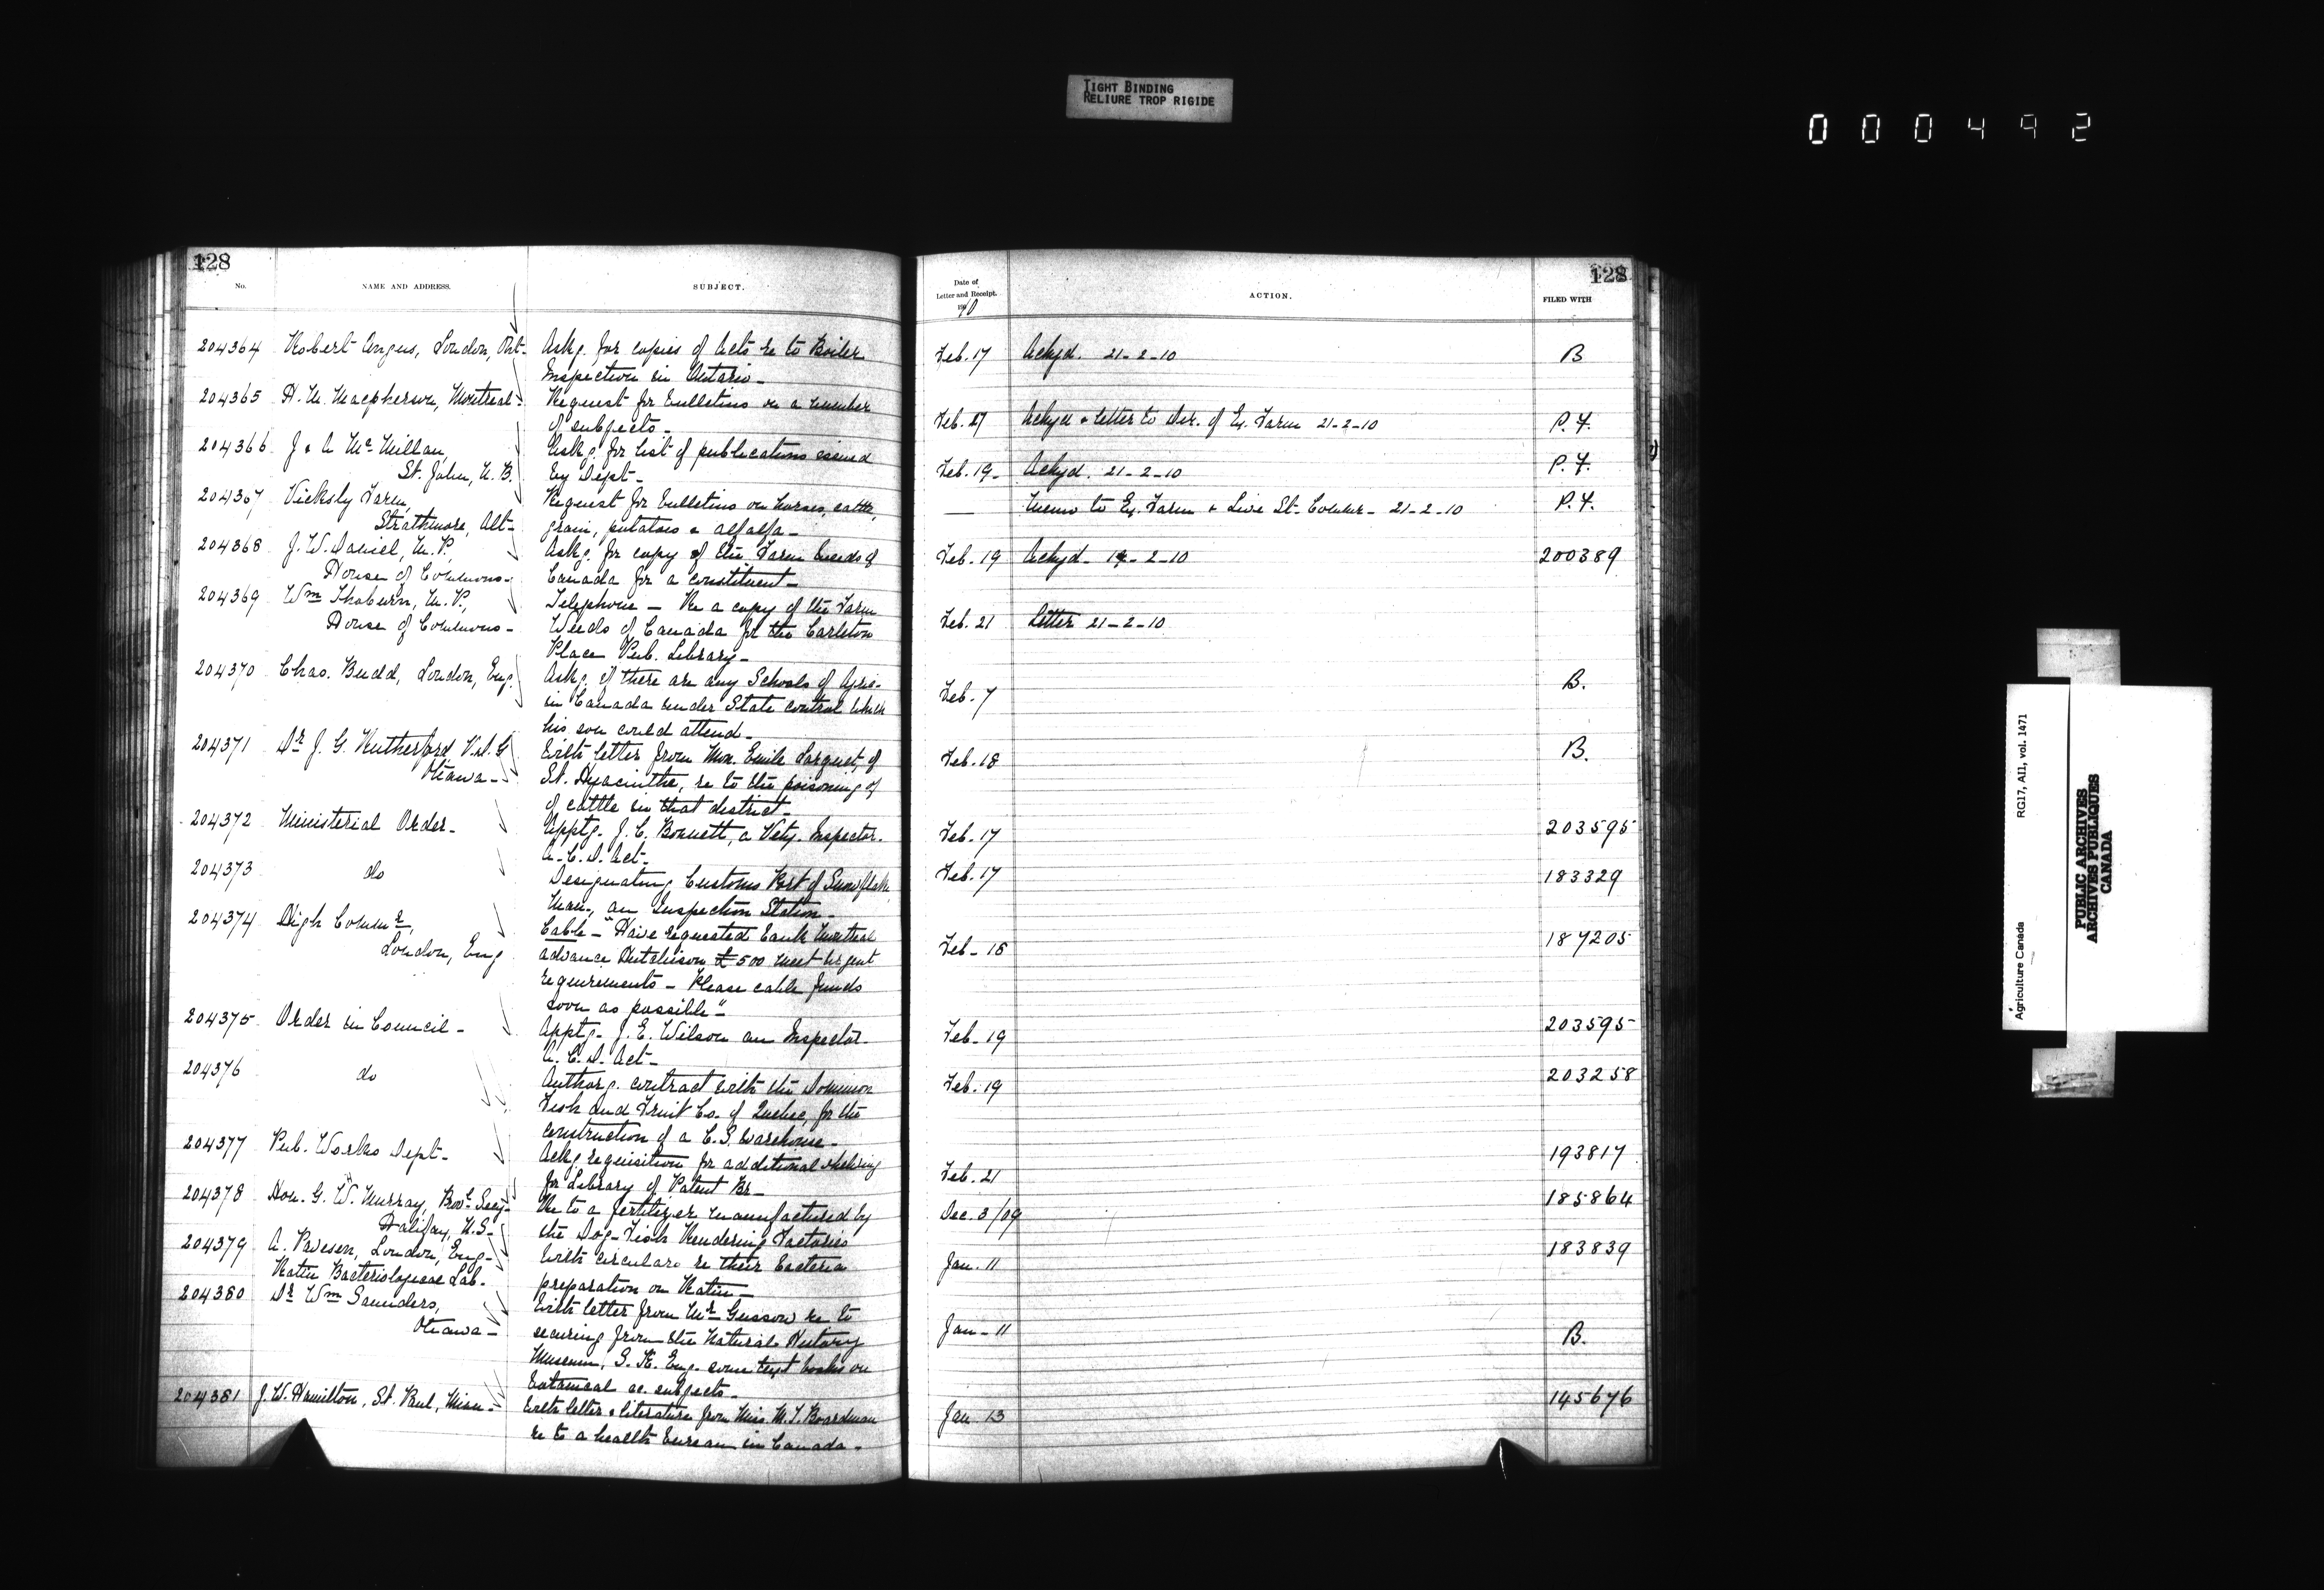 TIGHT BINDING
RELIURE TROP RIGIDE
000492
128
No.
NAME AND ADDRESS.
SUBJECT.
204364 Robert Angus, London, Ont- Askg. for copies of Acts re to Boiler
Inspection in Ontario-
204365 H. M. Macpherson, Montreal- Request for bulletins on a number
of subjects-
204366 J. & A. McMillan, Askg. for list of publications issued
St. John, N.B. by Dept-
204367 Farm, Request for bulletins on horses, cattle,
Strathmore, Alt- grain, potatoes & alfalfa-
204368 J. W. Daniel, M.P., Askg. for copy of the Farm Weeds of
House of Commons- Canada for a constituent-
204369 Wm Thoburn, M.P., Telephone - Re a copy of the Farm
House of Commons- Weeds of Canada for the Carleton
Place Pub. Library-
204370 Chas. Budd, London, Eng. Askg. if there are any Schools of Agric.
in Canada under State control which
his son could attend-
204371 Dr J. G. Rutherford V.D.G. With letter from Mon. Emile of
Ottawa- St. Hyacinthe, re to the poisoning of
of cattle in that district-
204372 Ministerial Order- Apptg. J. C. a Vety. Inspector.
A.C.D. Act-
204373 do Designating Customs Port of Snowflake
Man., an Inspection Station-
204374 High Commr, Cable - "Have requested bank Montreal
London, Eng advance Hutchison £500 meet urgent
requirements - Please cable funds
soon as possible"-
204375 Order in Council- Apptg. J. E. Wilson an Inspector.
A.C.D. Act-
204376 do Authorg. contract with the Dominion
Fish and Fruit Co. of Quebec, for the
construction of a C.S. warehouse-
204377 Pub. Works Dept- Askg requisition for additional shelving
for Library of Patent Br-
204378 Hon. G. W. Murray, Provl Secy- Re to a fertilizer manufactured by
Halifax, N.S- the Dog-Fish Rendering Factories
204379 A. London, Eng- With circulars re their bacteria
Ratin Bacteriological Lab. preparation on Ratin-
204380 Dr Wm Saunders, With letter from Mr Gussow re to
Ottawa- securing from the Natural History
Museum, S. K. Eng. some text books on
botanical &c. subjects-
204381 J. W. Hamilton, St. Paul, Minn- With letter & literature from Miss M. T. Boardman
re to a health bureau in Canada-
128
Date of
Letter and Receipt.
1910
ACTION.
FILED WITH
Feb. 17 Ackgd. 21-2-10 B
Feb. 17 Ackgd & letter to Dir. of Ex. Farm 21-2-10 P.F.
Feb. 19- Ackgd. 21-2-10 P.F.
— Memo to Ex. Farm & Live St. Commr- 21-2-10 P.F.
Feb. 19 Ackgd- 19-2-10 200389
Feb. 21 Letter 21-2-10
Feb. 7 B.
Feb. 18 B.
Feb. 17 203595
Feb. 17 183329
Feb- 18 187205
Feb- 19 203595
Feb. 19 203258
Feb. 21 193817
Dec. 3/09 185864
Jan. 11 183839
Jan- 11 B.
Jan 13 145676
Agriculture Canada
RG17, AII, vol. 1471
PUBLIC ARCHIVES
ARCHIVES PUBLIQUES
CANADA